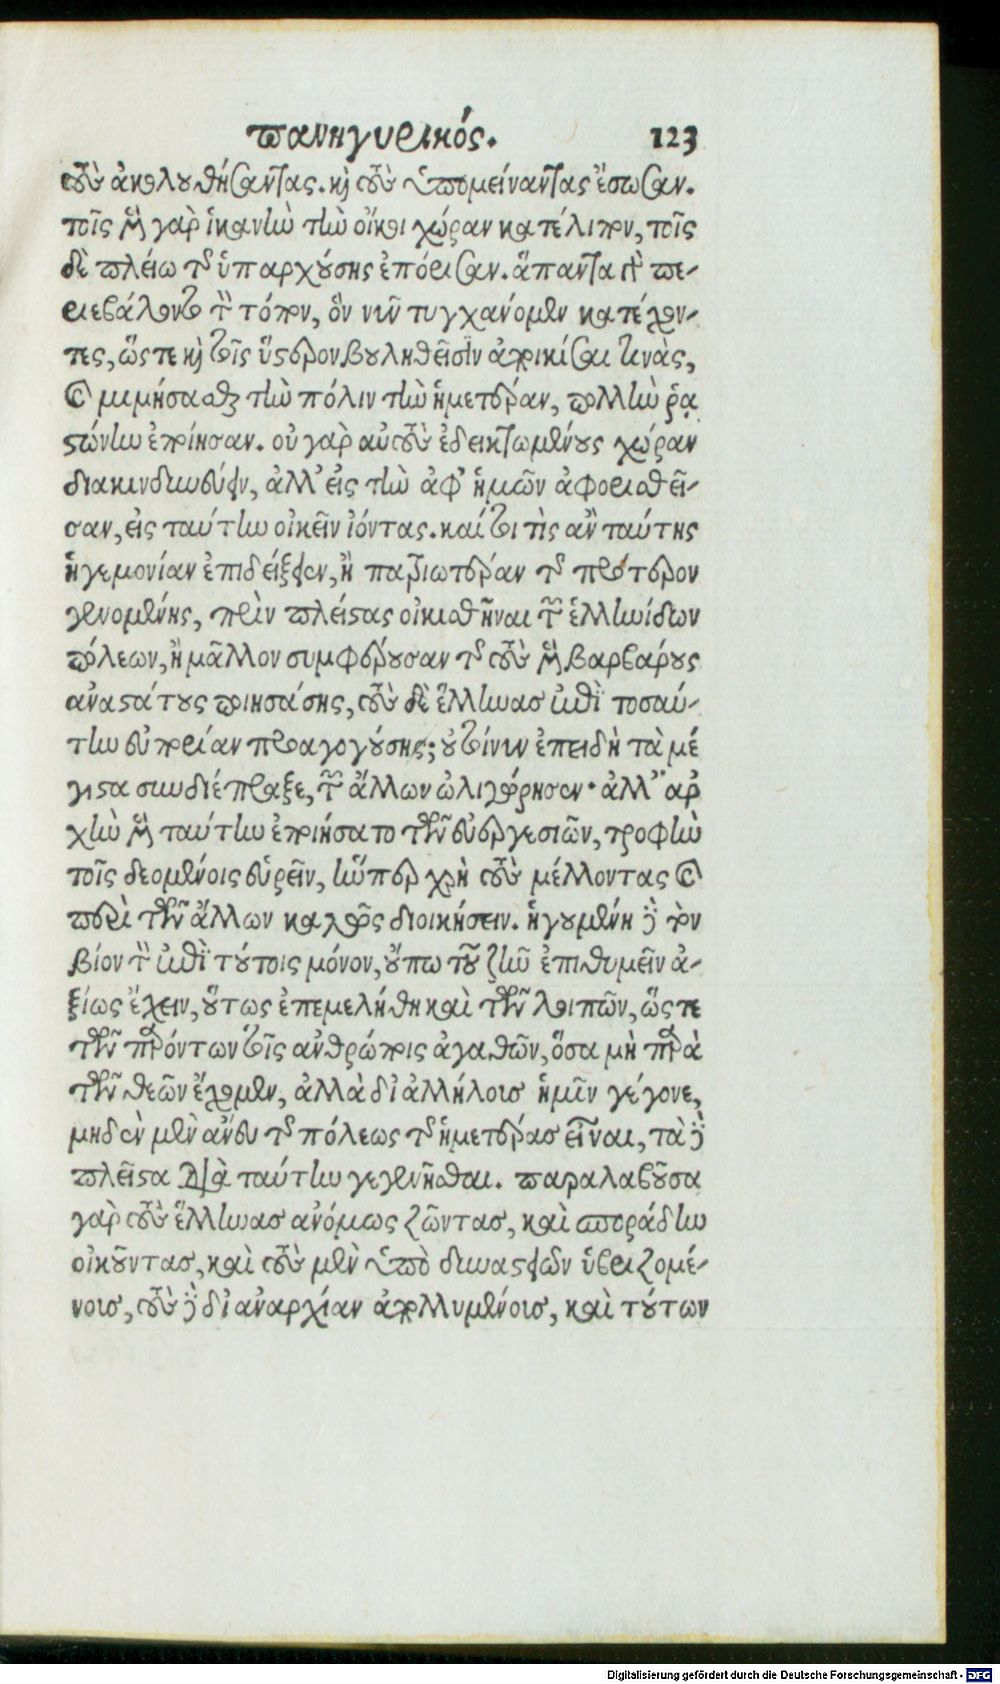 πανηγυρικός. 123
τοὺς ἀκολουθήσαντας. καὶ τοὺς ὑπομείναντας ἔσωσαν.
τοῖς μὲν γὰρ ἱκανὴν τὴν οἴκοι χώραν κατέλιπον, τοῖς
δὲ πλείω τῆς ὑπαρχούσης ἐπόρισαν. ἅπαντα γὰρ πε-
ριεβάλοντο τὸν τόπον, ὃν νῦν τυγχάνομεν κατέχον-
τες, ὥςτε καὶ τοῖς ὕστερον βουληθεῖσιν ἀποικίσαι τινὰς,
καὶ μιμήσασθαι τὴν πόλιν τὴν ἡμετέραν, πολλὴν ῥα
στώνην ἐποίησαν. οὐ γὰρ αὐτοὺς ἔδει κτωμένους χώραν
διακινδυνεύειν, ἀλλ' εἰς τὴν ἀφ' ἡμῶν ἀφορισθεῖ-
σαν, εἰς ταύτην οἰκεῖν ἰόντας. καί τοι τίς ἂν ταύτης
ἡγεμονίαν ἐπιδείξειεν, ἢ πατριωτέραν τῆς πρότερον
γενομένης, πρὶν πλείστας οἰκισθῆναι τῶν ἑλληνίδων
πόλεων, ἢ μᾶλλον συμφέρουσαν τῆς τοὺς μὲν βαρβάρους
ἀναστάτους ποιησάσης, τοὺς δὲ ἕλληνας ἐπὶ τοσαύ-
την εὐπορίαν προαγογούσης; οὐ τοίνυν ἐπειδὴ τὰ μέ
γιστα συνδιέπραξε, τῶν ἄλλων ὠλιγώρησεν· ἀλλ' ἀρ
χὴν μὲν ταύτην ἐποιήσατο τῶν εὐεργεσιῶν, τροφὴν
τοῖς δεομένοις εὑρεῖν, ἥνπερ χρὴ τοὺς μέλλοντας καὶ
περὶ τῶν ἄλλων καλῶς διοικήσειν. ἡγουμένη δὲ τὸν
βίον τὸν ἐπὶ τούτοις μόνον, οὔπω τοῦ ζῆν ἐπιθυμεῖν ἀ-
ξίως ἔχειν, οὕτως ἐπεμελήθη καὶ τῶν λοιπῶν, ὥςτε
τῶν παρόντων τοῖς ἀνθρώποις ἀγαθῶν, ὅσα μὴ παρὰ
τῶν θεῶν ἔχομεν, ἀλλὰ δι' ἀλλήλους ἡμῖν γέγονε,
μηδὲν μὲν ἄνευ τῆς πόλεως τῆς ἡμετέρας εἶναι, τὰ δὲ
πλεῖστα διὰ ταύτην γεγενῆσθαι. παραλαβοῦσα
γὰρ τοὺς ἕλληνας ἀνόμως ζῶντας, καὶ σποράδην
οἰκοῦντας, καὶ τοὺς μὲν ὑπὸ δυναστειῶν ὑβριζομέ-
νους, τοὺς δὲ δι' ἀναρχίαν ἀπολλυμένους, καὶ τούτων
Digitalisierung gefördert durch die Deutsche Forschungsgemeinschaft - DFG